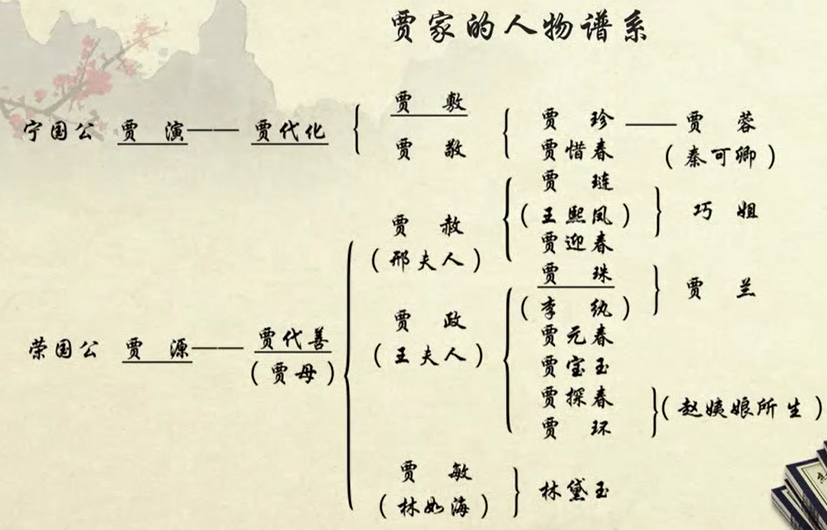 贾家的人物谱系
宁国公 贾 演——贾代化
贾 敷
贾 敬
贾 珍——贾 蓉
贾惜春
(秦可卿)
荣国公 贾 源——贾代善
(贾母)
贾 赦
(邢夫人)
贾 琏
(王熙凤)
贾迎春
巧 姐
贾 政
(王夫人)
贾 珠
(李 纨)
贾 兰
贾元春
贾宝玉
贾探春
贾 环
(赵姨娘所生)
贾 敏
(林如海)
林黛玉